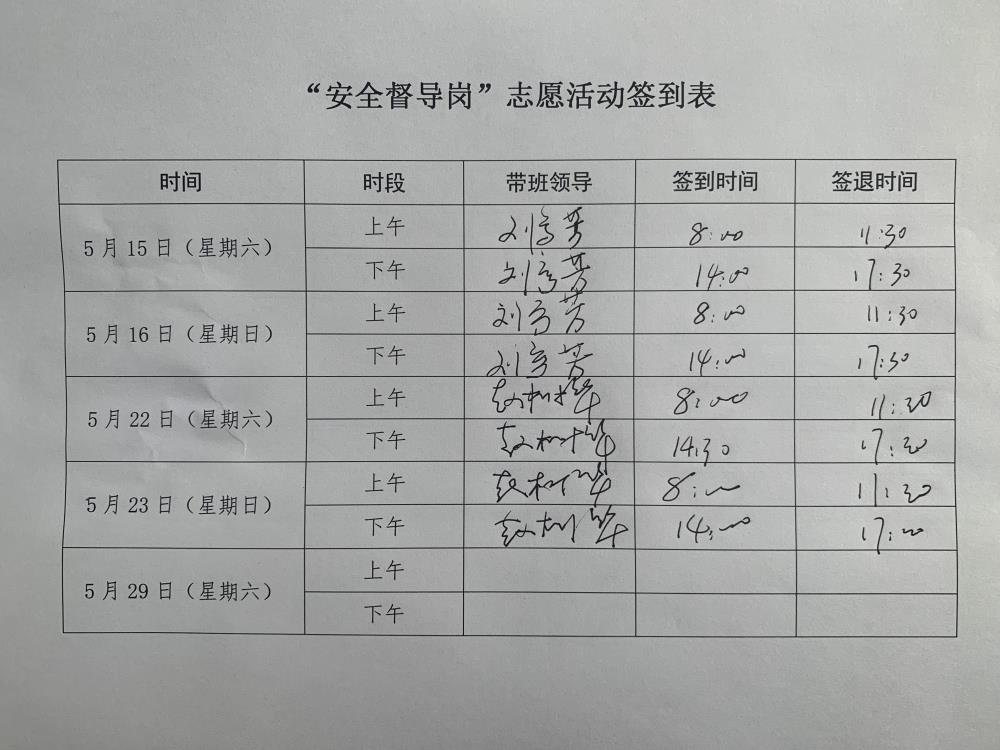 “安全督导岗”志愿活动签到表
时间 时段 带班领导 签到时间 签退时间
5月15日（星期六） 上午 刘 芳 8:00 11:30
下午 刘 芳 14:00 17:30
5月16日（星期日） 上午 刘 芳 8:00 11:30
下午 刘 芳 14:00 17:30
5月22日（星期六） 上午 赵树 8:00 11:30
下午 赵树 14:30 17:30
5月23日（星期日） 上午 赵树 8:00 11:30
下午 赵树 14:00 17:00
5月29日（星期六） 上午
下午